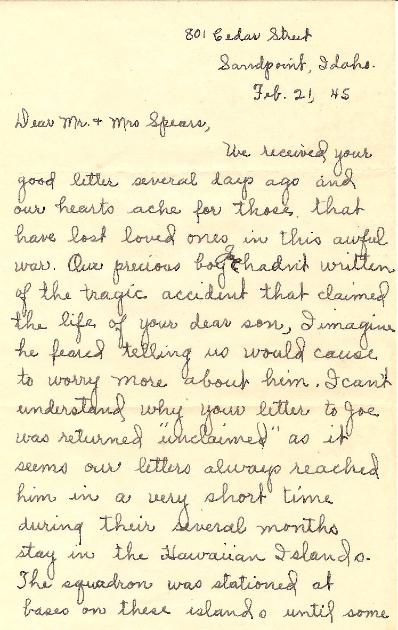 801 Cedar Street
Sandpoint, Idaho.
Feb. 21, 45
Dear Mr. & Mrs Spears,
We received your
good letter several days ago and
our hearts ache for those that
have lost loved ones in this awful
war. Our precious boy Joe hadn't written
of the tragic accident that claimed
the life of your dear son, I imagine
he feared telling us would cause
to worry more about him. I can't
understand why your letter to Joe
was returned "unclaimed" as it
seems our letters always reached
him in a very short time
during their several months
stay in the Hawaiian Islands.
The squadron was stationed at
bases on these islands until some